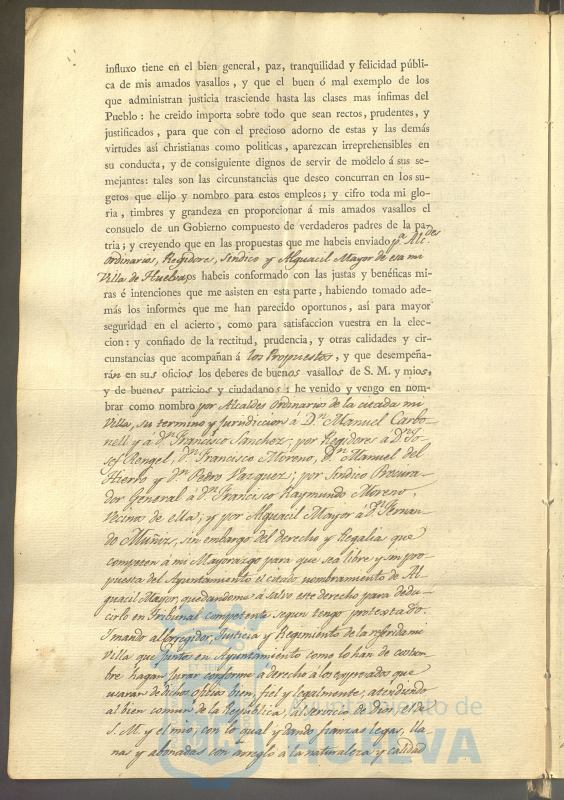 influxo tiene en el bien general, paz, tranquilidad y felicidad públi-
ca de mis amados vasallos, y que el buen ó mal exemplo de los
que administran justicia trasciende hasta las clases mas ínfimas del
Pueblo: he creido importa sobre todo que sean rectos, prudentes, y
justificados, para que con el precioso adorno de estas y las demás
virtudes así christianas como políticas, aparezcan irreprehensibles en
su conducta, y de consiguiente dignos de servir de modelo á sus se-
mejantes: tales son las circunstancias que deseo concurran en los su-
getos que elijo y nombro para estos empleos; y cifro toda mi glo-
ria, timbres y grandeza en proporcionar á mis amados vasallos el
consuelo de un Gobierno compuesto de verdaderos padres de la pa-
tria; y creyendo que en las propuestas que me habeis enviado pª Alc.des
ordinarios, Regidores, Sindico y Alguacil Mayor de esa mi
Villa de Huelva, os habeis conformado con las justas y benéficas mi-
ras é intenciones que me asisten en esta parte, habiendo tomado ade-
más los informes que me han parecido oportunos, así para mayor
seguridad en el acierto, como para satisfaccion vuestra en la elec-
cion: y confiado de la rectitud, prudencia, y otras calidades y cir-
cunstancias que acompañan á los Propuestos, y que desempeña-
rán en sus oficios los deberes de buenos vasallos de S. M. y mios,
y de buenos patricios y ciudadanos: he venido y vengo en nom-
brar como nombro por Alcaldes Ordinarios de la citada mi
Villa, su termino y jurisdiccion á Dn. Manuel Carbo-
nell y á Dn. Francisco Sanchez, por Regidores á Dn. Jo-
sef Rengel, Dn. Francisco Moreno, Dn. Manuel del
Hierro y Dn. Pedro Vazquez; por Sindico Procura-
dor General á Dn. Francisco Raymundo Moreno,
Vecinos de ella; y por Alguacil Mayor á Dn. Fernan-
do Muñiz, sin embargo del derecho y Regalia que
competen á mi Mayorazgo para que sea libre y sin pro-
puesta del Ayuntamiento el citado nombramiento de Al-
guacil Mayor, quedandome á salvo este derecho para dedu-
cirlo en Tribunal competente segun tengo protextado.
I mando al Corregidor, Justicia y Regimiento de la referida mi
Villa que juntos en Ayuntamiento como lo han de costum-
bre hagan jurar conforme á derecho á los expresados que
usaran de dichos oficios bien, fiel y legalmente, atendiendo
al bien comun de la Republica, al servicio de Dios, el de
S. M. y el mio; con lo qual y dando fianzas legas, lla-
nas y abonadas con arreglo á la naturaleza y calidad
Ayuntamiento de
HUELVA